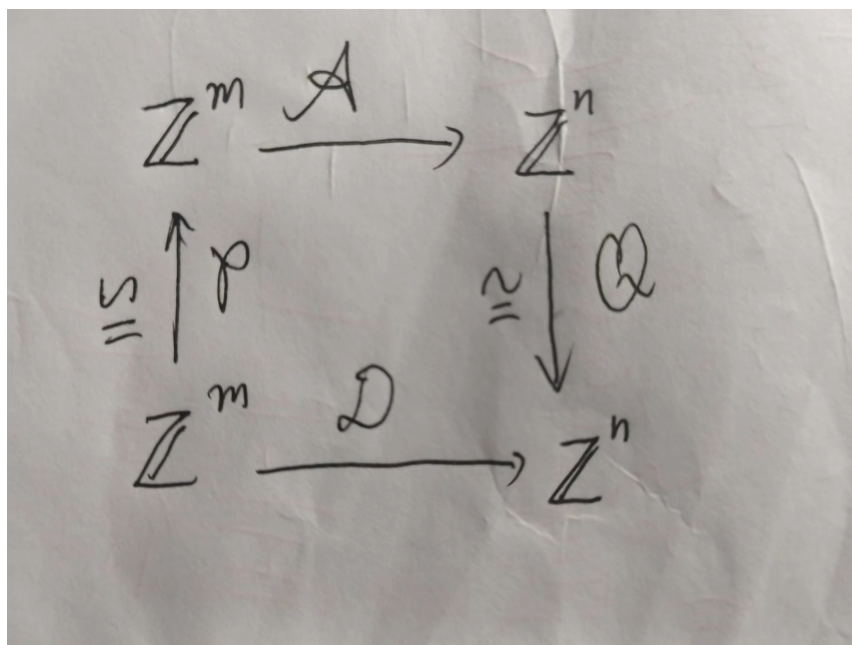 ℤᵐ 𝒜 → ℤⁿ
≅ ↑ 𝒫 ≅ ↓ 𝒬
ℤᵐ 𝒟 → ℤⁿ